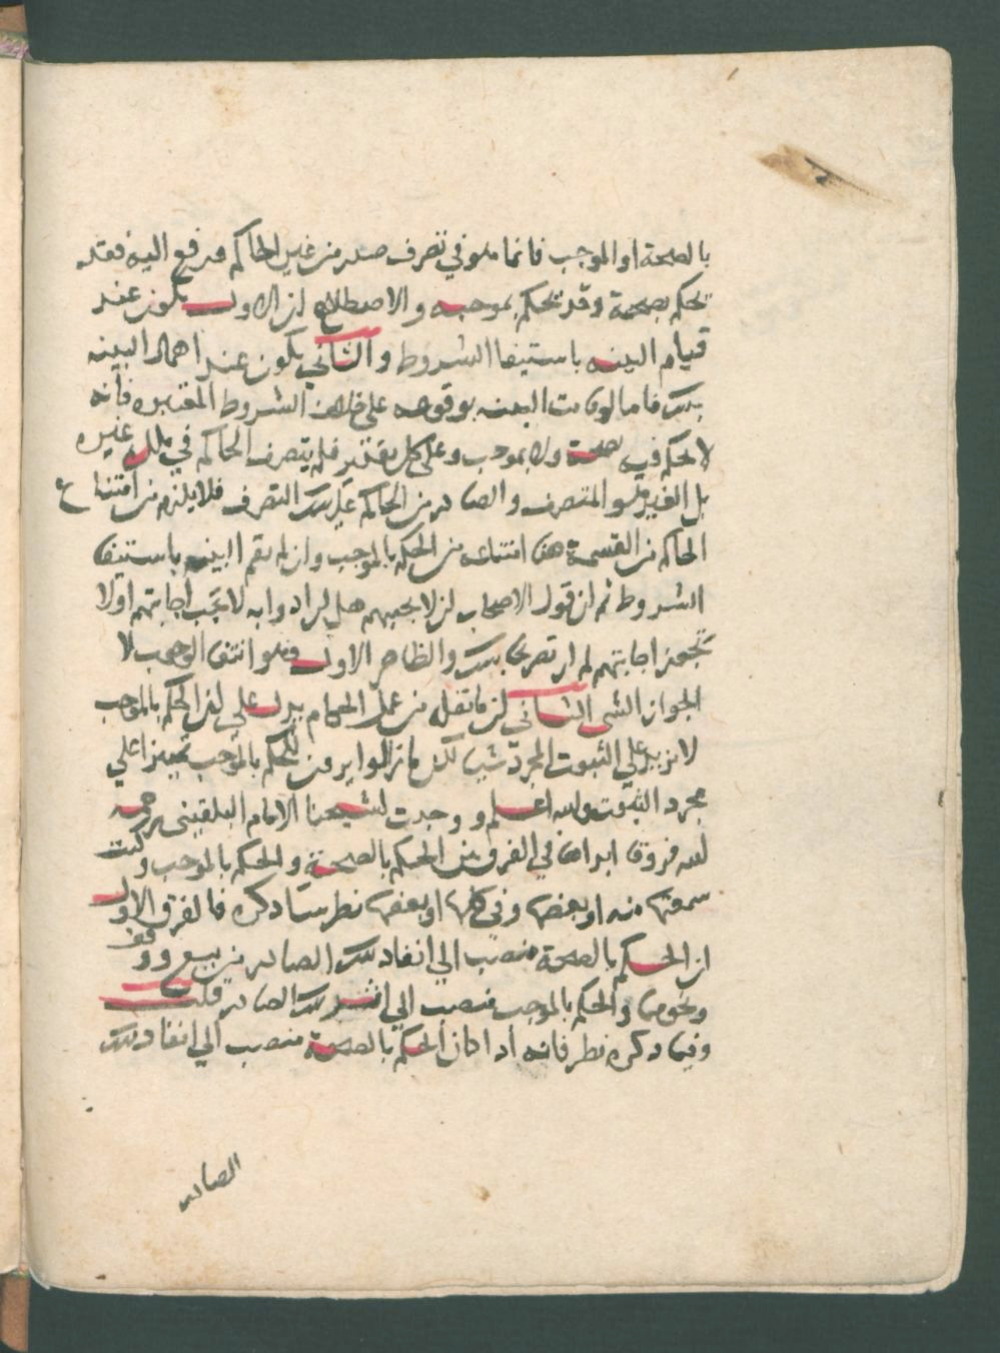 بالصحة او الموجب فانما هو في تصرف صدر من غير الحاكم ورفع اليه فقد
يحكم بصحته وقد يحكم بموجبه والاصطلاح ان الاول يكون عند
قيام البينه باستيفا الشروط والثاني يكون عند اهمال البينه
بذلك فاما لو قامت البينه بوقوعه على خلاف الشروط المعتبره فانه
لا يحكم فيه بصحته ولا بموجب وعلى كل تقدير فلم يتصرف الحاكم في ملك غيره
بل الغير هو المتصرف والصادر من الحاكم غير ذلك التصرف فلا يلزم من امتناع
الحاكم من القسمة هنا امتناعه من الحكم بالموجب وان لم تقم البينه باستيفا
الشروط ثم ان قول الاصحاب لا يجيبهم هل ارادوا به لا تجب اجابتهم اولا
تجوز اجابتهم لم ار تصريحا بذلك والظاهر الاول وهو انتفا الوجوب لا
الجواز الشي الثاني ان ما نقله من عمل الحكام يدل على ان الحكم بالموجب
لا يزيد على الثبوت المجرد شيا لكن ما زالوا يرون للحكم بالموجب تمييزا على
مجرد الثبوت والله اعلم ووجدت لشيخنا الامام البلقيني رحمه
الله فروقا ابداها في الفرق بين الحكم بالصحة والحكم بالموجب وكنت
سمعتها منه او بعضها وفي كلها او بعضها نظر سنذكره فالفرق الاول
ان الحكم بالصحة منصب الي انفاذ ذلك الصادر من بيع ووقف
ونحوهما والحكم بالموجب منصب الي اثر ذلك الصادر قلت
وفيما ذكره نظر فانه اذا كان الحكم بالصحة منصب الي انفاذ ذلك
الصادر